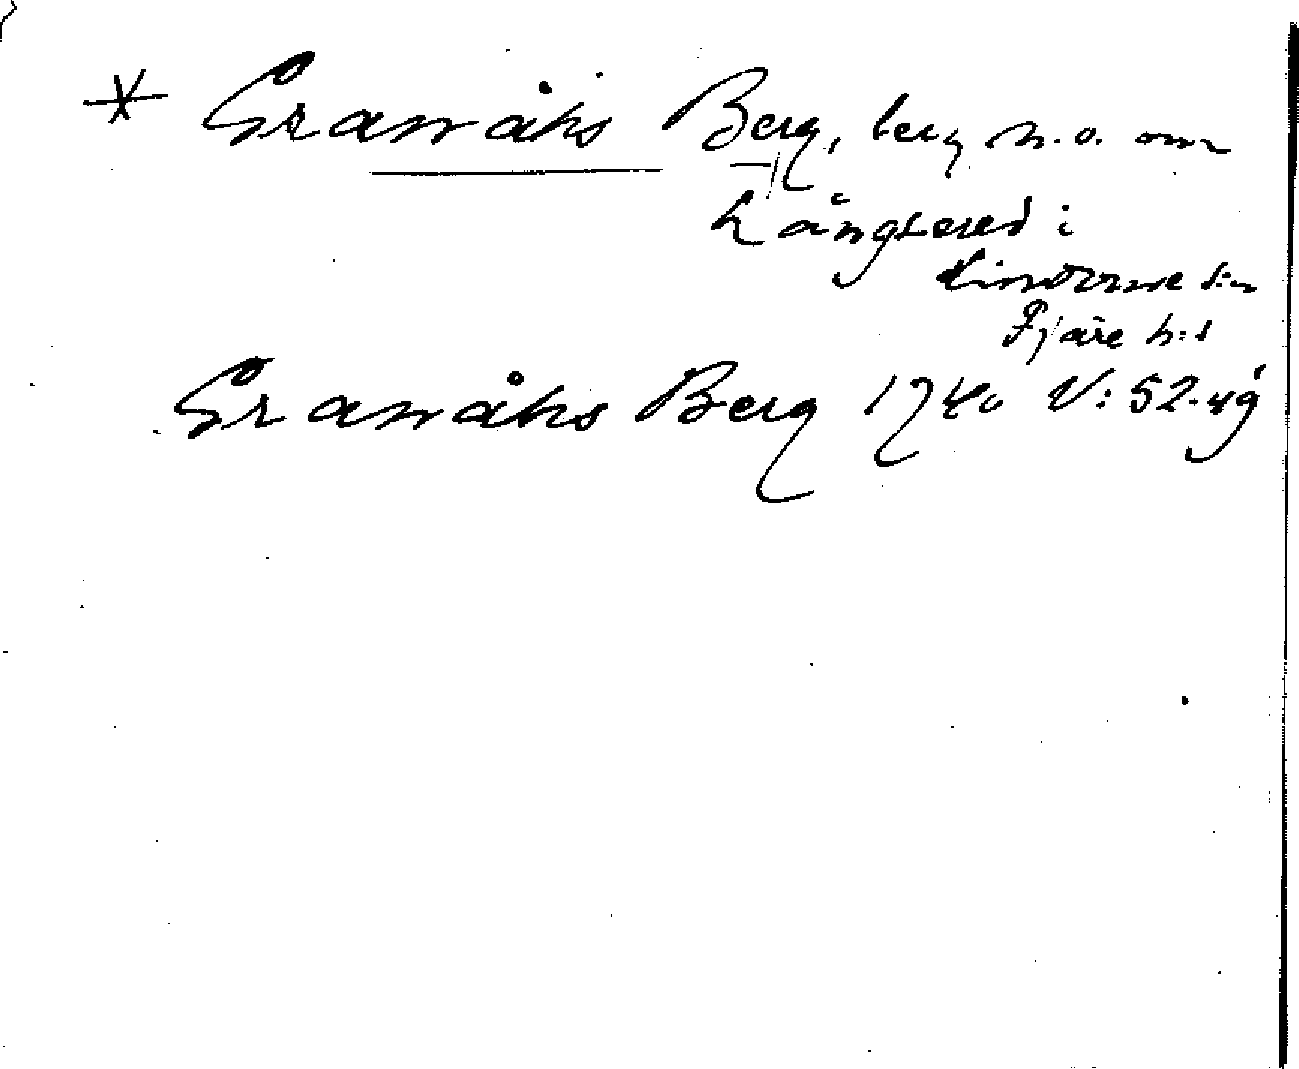 * Granåks Berg, berg n.o. om
Långared i
Lindome sn
Fjäre h:d
Granåks Berg 1740 V: 52.49